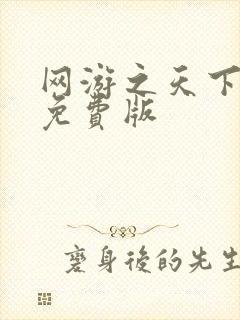 网游之天下
免费版
变身後的先生